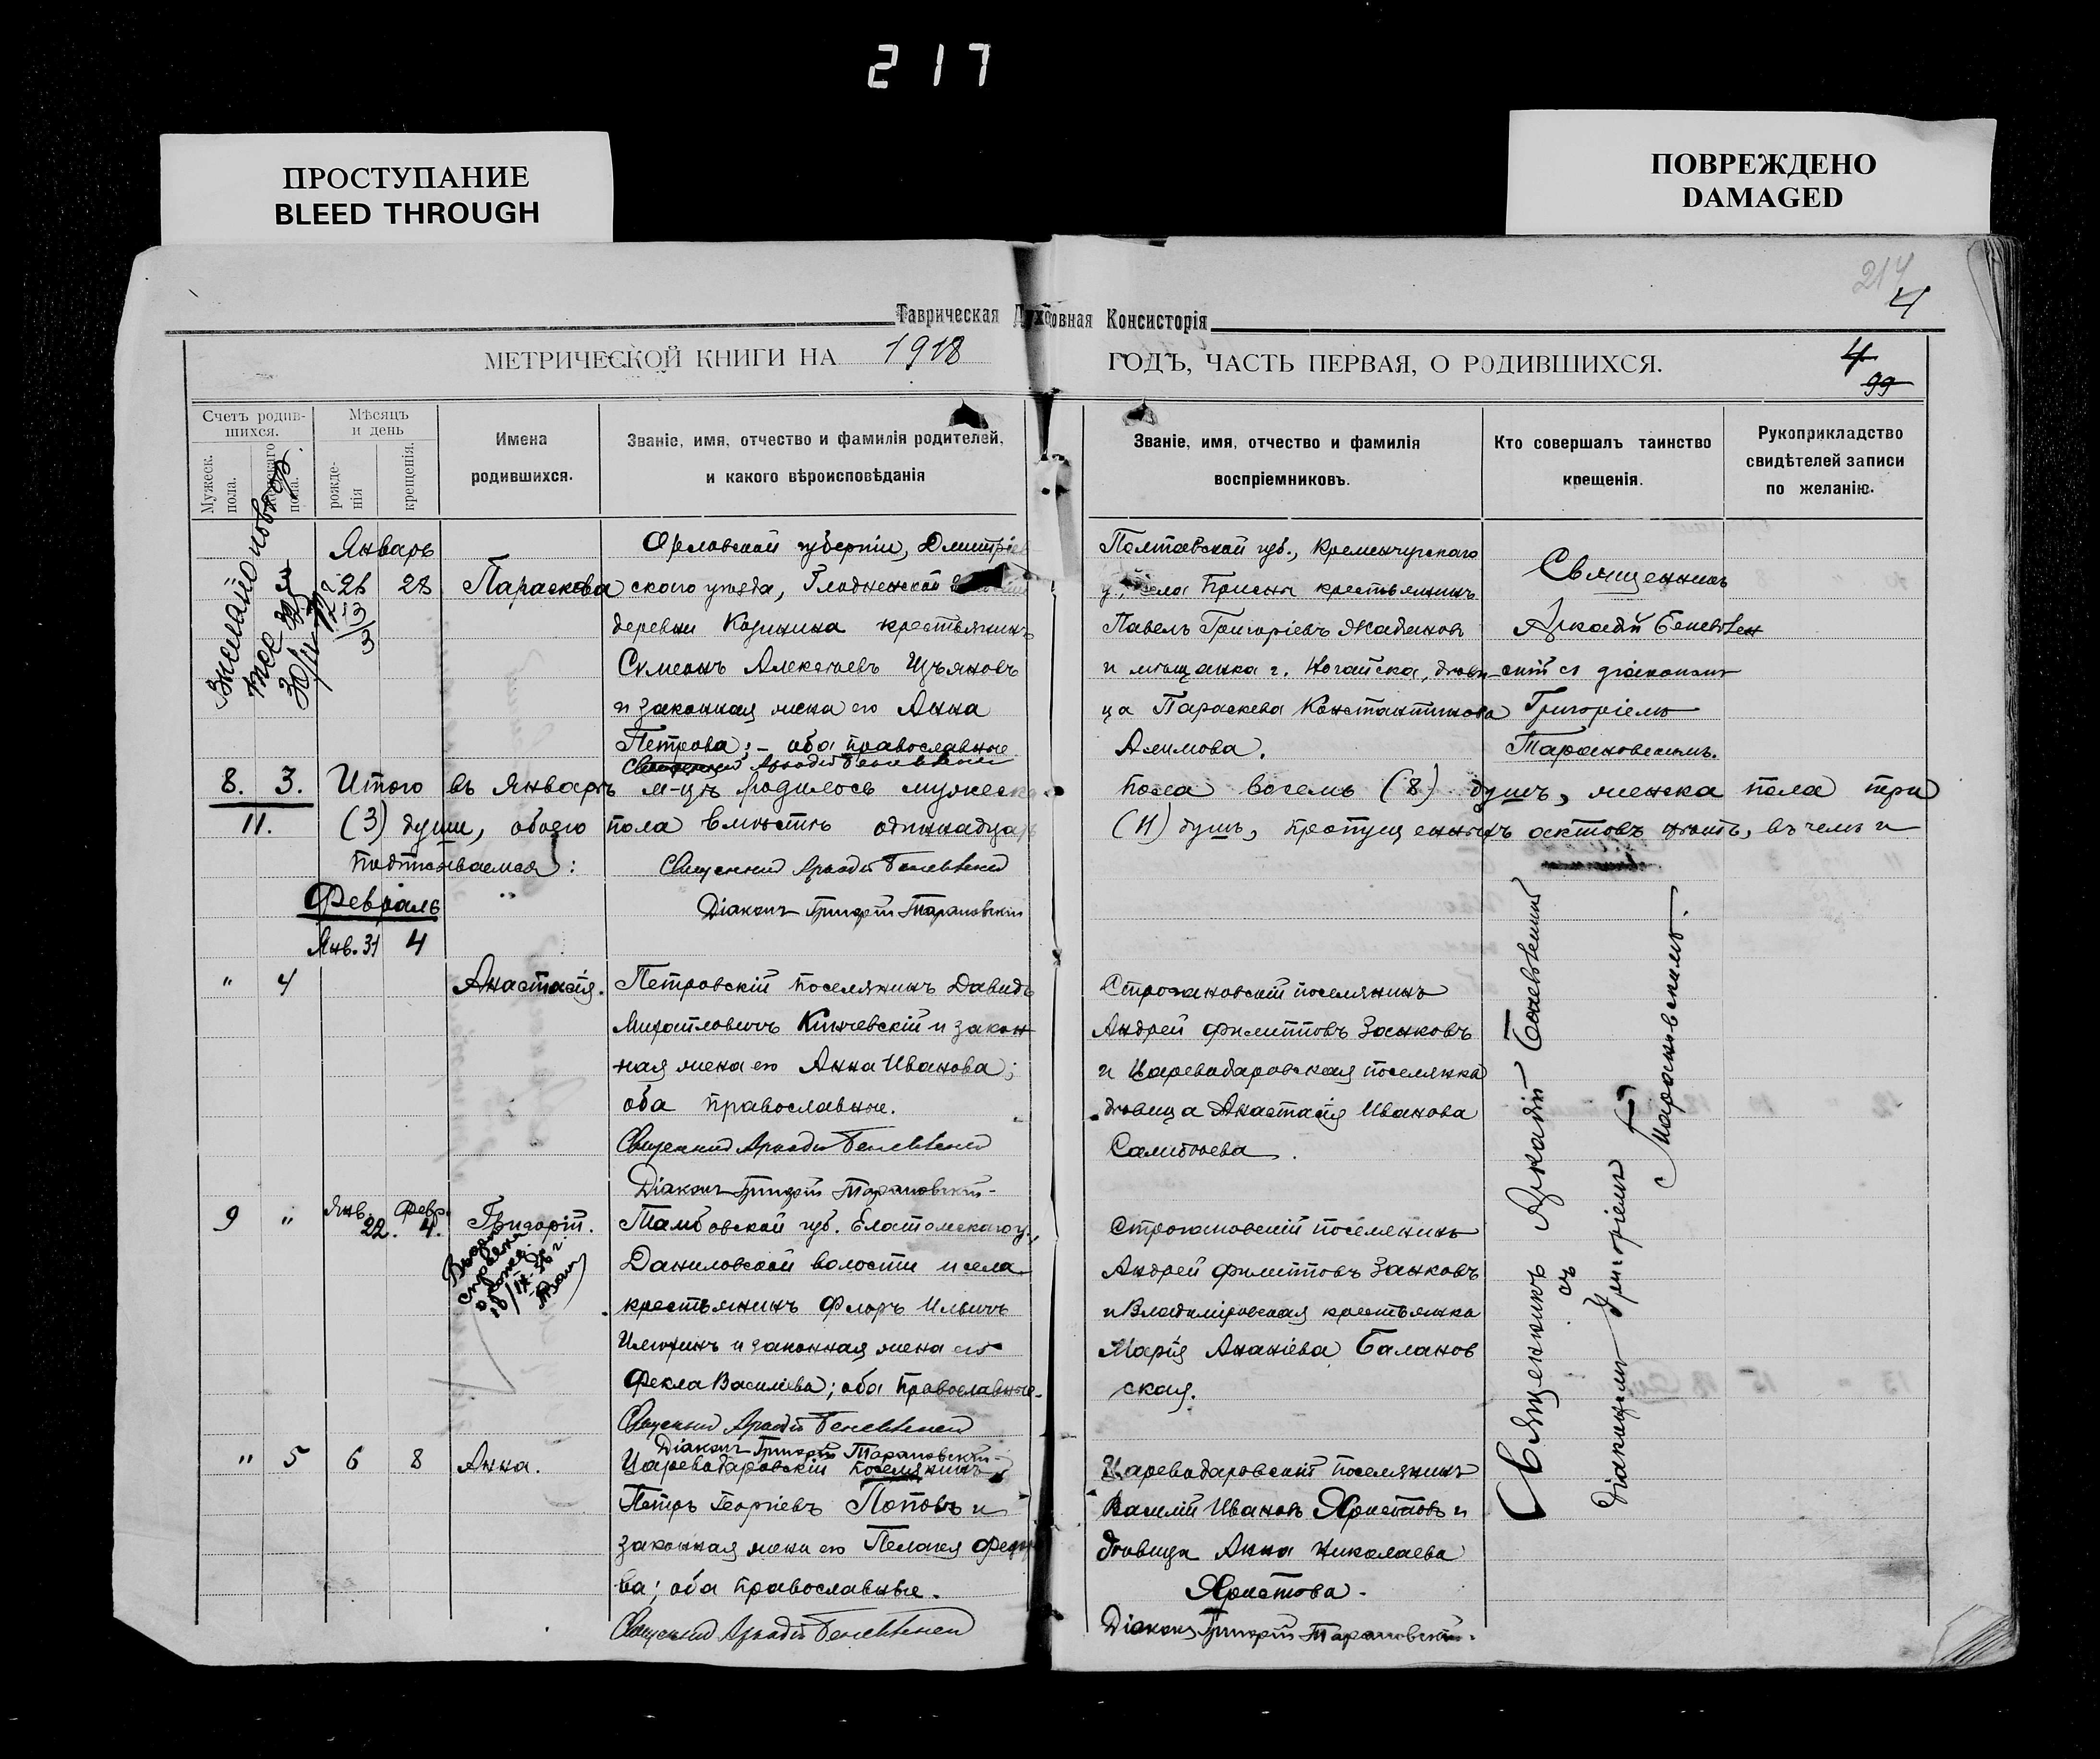 217
ПРОСТУПАНИЕ
BLEED THROUGH
ПОВРЕЖДЕНО
DAMAGED
214
4
Таврическая Духовная Консисторія
МЕТРИЧЕСКОЙ КНИГИ НА 1918 ГОДЪ, ЧАСТЬ ПЕРВАЯ, О РОДИВШИХСЯ.
4
99
Счетъ родив-
шихся.
Мужеск. пола.
Женскаго пола.
Мѣсяцъ
и день
рожде-
нія
крещенія.
Имена
родившихся.
Званіе, имя, отчество и фамилія родителей,
и какого вѣроисповѣданія
Званіе, имя, отчество и фамилія
воспріемниковъ.
Кто совершалъ таинство
крещенія.
Рукоприкладство
свидѣтелей записи
по желанію.
Январь
28
Параскева
Орловской губерніи, Дмитріев
скаго уѣзда,
деревни крестьянинъ
Симеонъ Алексѣевъ
и законная жена его Анна
Петрова; – оба православные
Священникъ Аркадій
Полтавской губ., Кременчугскаго
у., села крестьянинъ
Павелъ Григоріевъ
и мѣщанка г. Ногайска, дѣви-
ца Параскева Константинова
Алимова.
Священникъ
Аркадій
скій съ діакономъ
Григоріемъ
Тарановскимъ.
8. 3. Итого въ Январѣ м-цѣ родилось мужеска пола восемь (8) душъ, женска пола три
11. (3) души, обоего пола вмѣстѣ одиннадцать (11) душъ, пропущенныхъ актовъ нѣтъ, въ чемъ и
подписываемся:
Священникъ Аркадій
Діаконъ Григорій Тарановскій
Февраль
Янв. 31 4
" 4
Анастасія.
Петровскій поселянинъ Давидъ
Михайловичъ и закон
ная жена его Анна Иванова;
оба православные.
Священникъ Аркадій
Діаконъ Григорій Тарановскій
Строгановскій поселянинъ
Андрей Филипповъ Занковъ
и Цареводаровская поселянка
дѣвица Анастасія Иванова
9 "
Янв. 22. Февр. 4.
Григорій.
Выдана
справка
о рожд.
Тамбовской губ. Елатомскаго у.,
Даниловской волости и села
крестьянинъ Флоръ Ильичъ
и законная жена его
Фекла Василіева; оба православные.
Священникъ Аркадій
Діаконъ Григорій Тарановскій
Строгановскій поселянинъ
Андрей Филипповъ Занковъ
и Владиміровская крестьянка
Марія Ананіева Баланов
ская.
" 5 6 8 Анна.
Цареводаровскій поселянинъ
Петръ Георгіевъ Поповъ и
законная жена его Пелагея Федоро
ва; оба православные.
Священникъ Аркадій
Цареводаровскій поселянинъ
Василій Ивановъ Христовъ и
дѣвица Анна Николаева
Христова.
Діаконъ Григорій Тарановскій.
Священникъ Аркадій
съ
діакономъ Григоріемъ
Тарановскимъ.